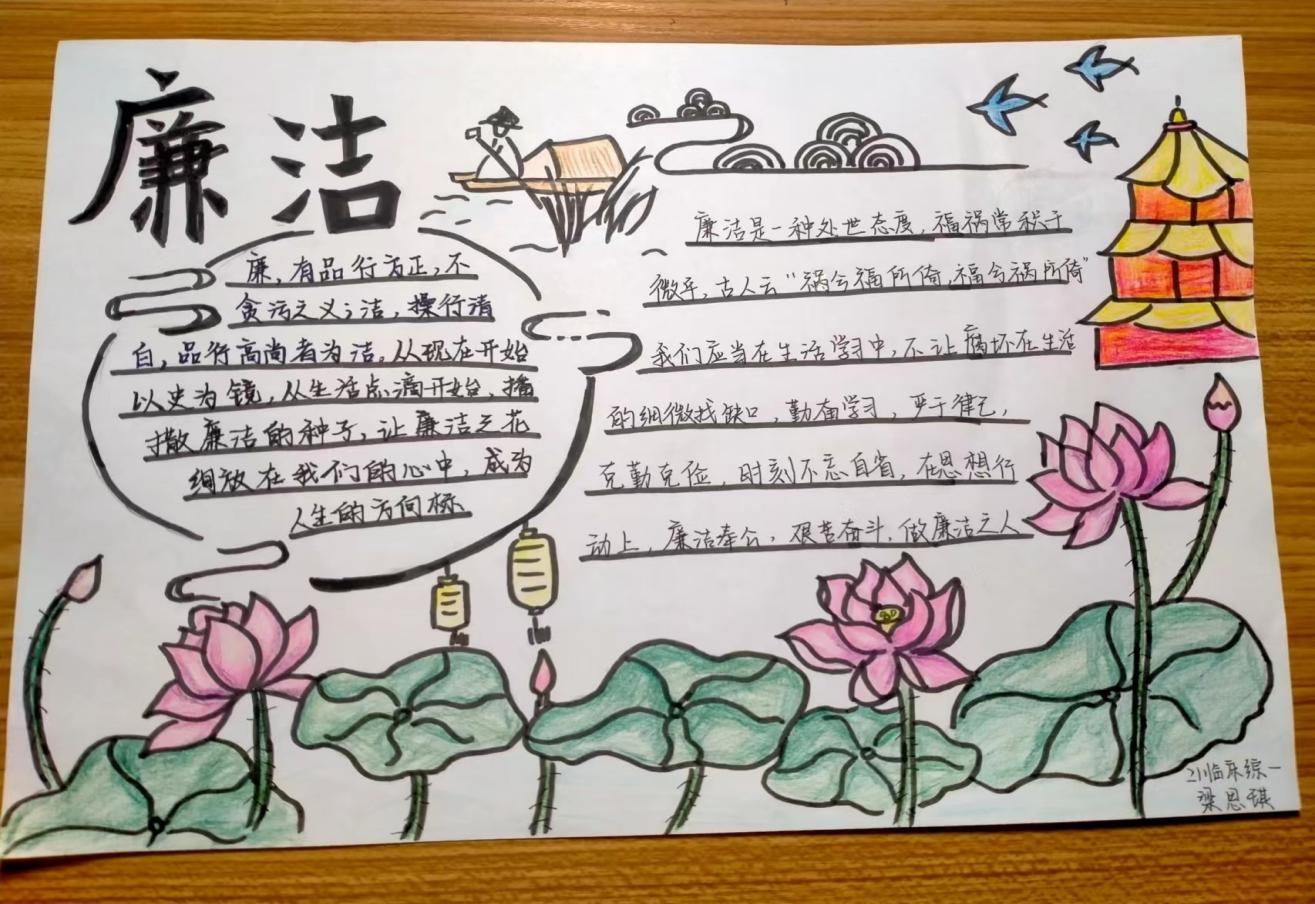 廉洁
廉，有品行方正，不
贪污之义；洁，操行清
白，品行高尚者为洁。从现在开始
以史为镜，从生活点滴开始，播
撒廉洁的种子，让廉洁之花
绸放在我们的心中，成为
人生的方向标
廉洁是一种处世态度，福祸常积于
微乎，古人云“祸兮福所倚，福兮祸所倚”
我们应当在生活学习中，不让腐坏在生活
的细微找缺口，勤奋学习，严于律己，
克勤克俭，时刻不忘自省，在思想行
动上，廉洁奉公，艰苦奋斗，做廉洁之人
21临床综一
梁思琪